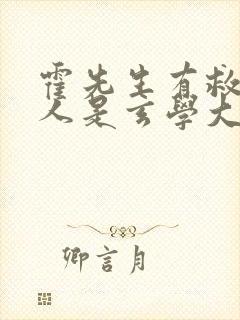 霍先生有救
人是玄學大
卿言月